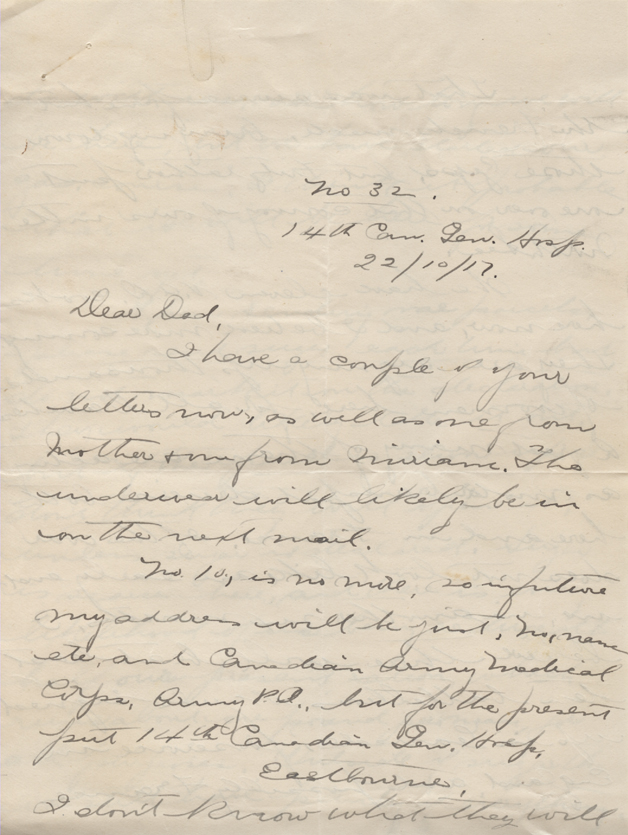 No 32.
14th Can. Gen. Hosp.
22/10/17.
Dear Dad,
I have a couple of your
letters now, as well as one from
Mother & one from Miriam. The
underwear will likely be in
on the next mail.
No. 10, is no more, so in future
my address will be just, No, name
etc, and Canadian Army Medical
Corps, Army P.O., but for the present
put 14th Canadian Gen. Hosp,
Eastbourne,
I don't know what they will